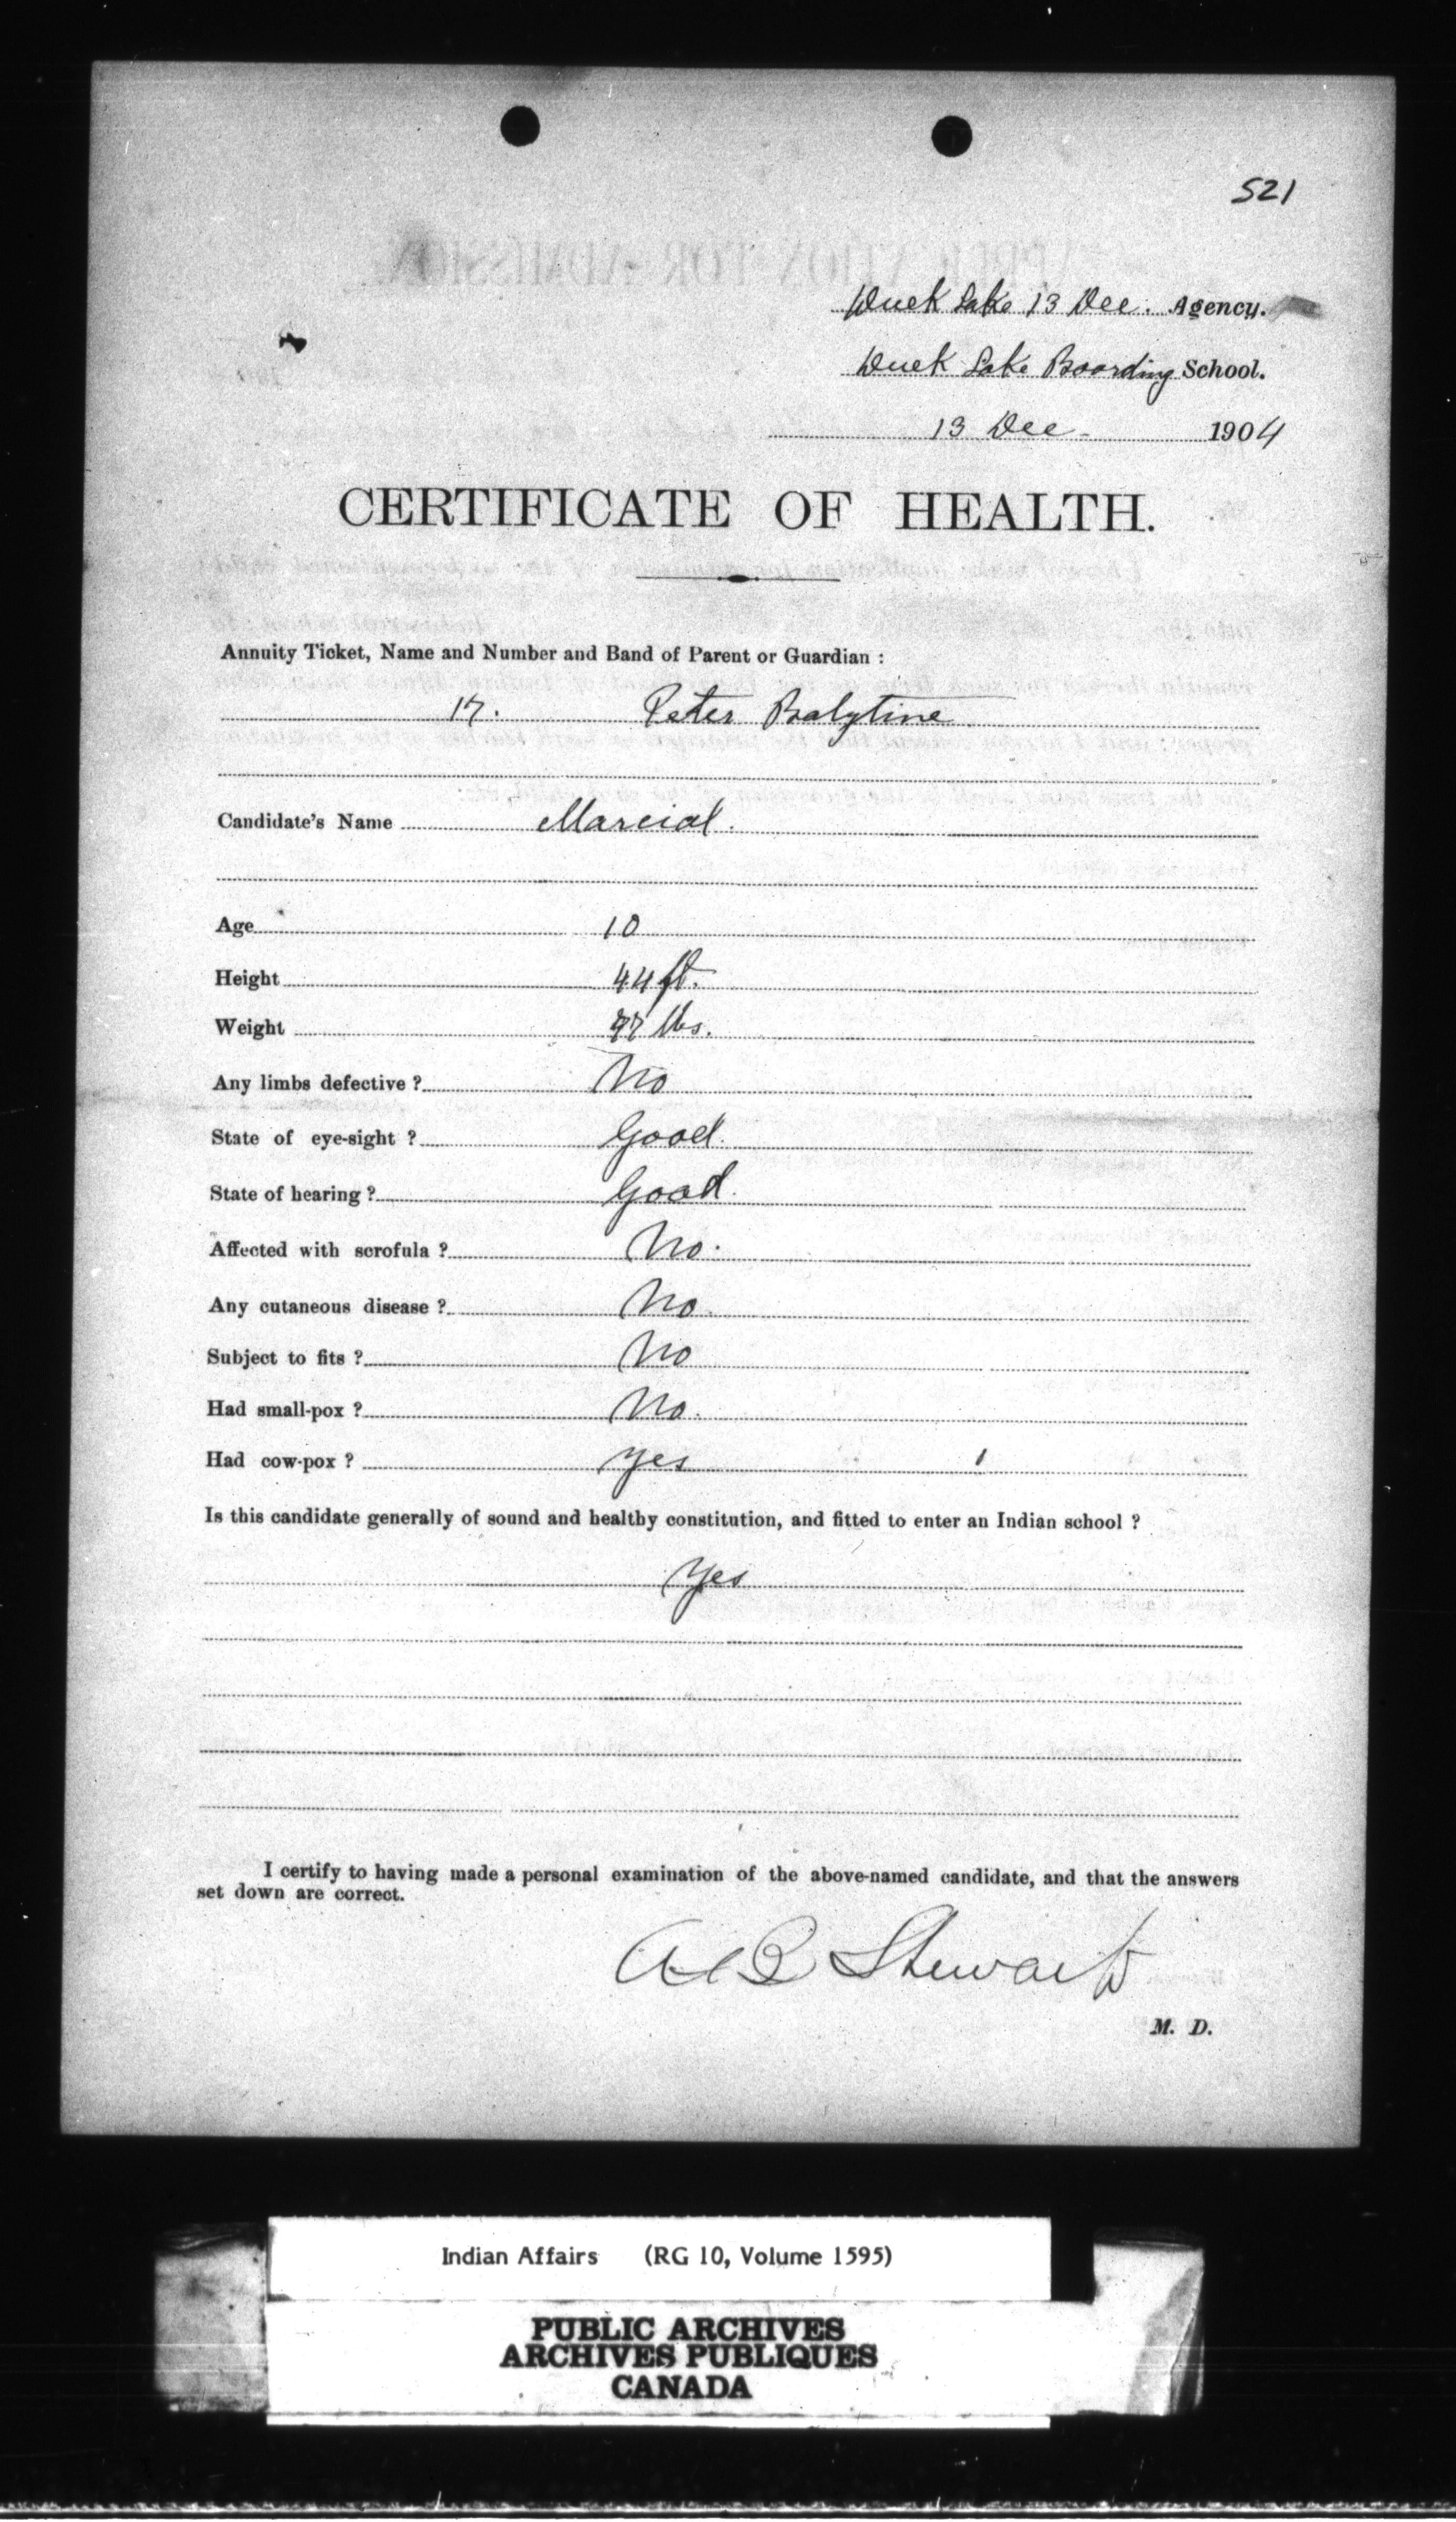 521
Duck Lake 13 Dec. Agency.
Duck Lake Boarding School.
13 Dec 1904
CERTIFICATE OF HEALTH.
Annuity Ticket, Name and Number and Band of Parent or Guardian :
17. Peter Balytine
Candidate's Name Marcial.
Age 10
Height 4.4 ft.
Weight lbs.
Any limbs defective ? No
State of eye-sight ? Good.
State of hearing ? Good.
Affected with scrofula ? No.
Any cutaneous disease ? No.
Subject to fits ? No
Had small-pox ? No.
Had cow-pox ? yes
Is this candidate generally of sound and healthy constitution, and fitted to enter an Indian school ?
Yes
I certify to having made a personal examination of the above-named candidate, and that the answers
set down are correct.
Stewart
M. D.
Indian Affairs (RG 10, Volume 1595)
PUBLIC ARCHIVES
ARCHIVES PUBLIQUES
CANADA